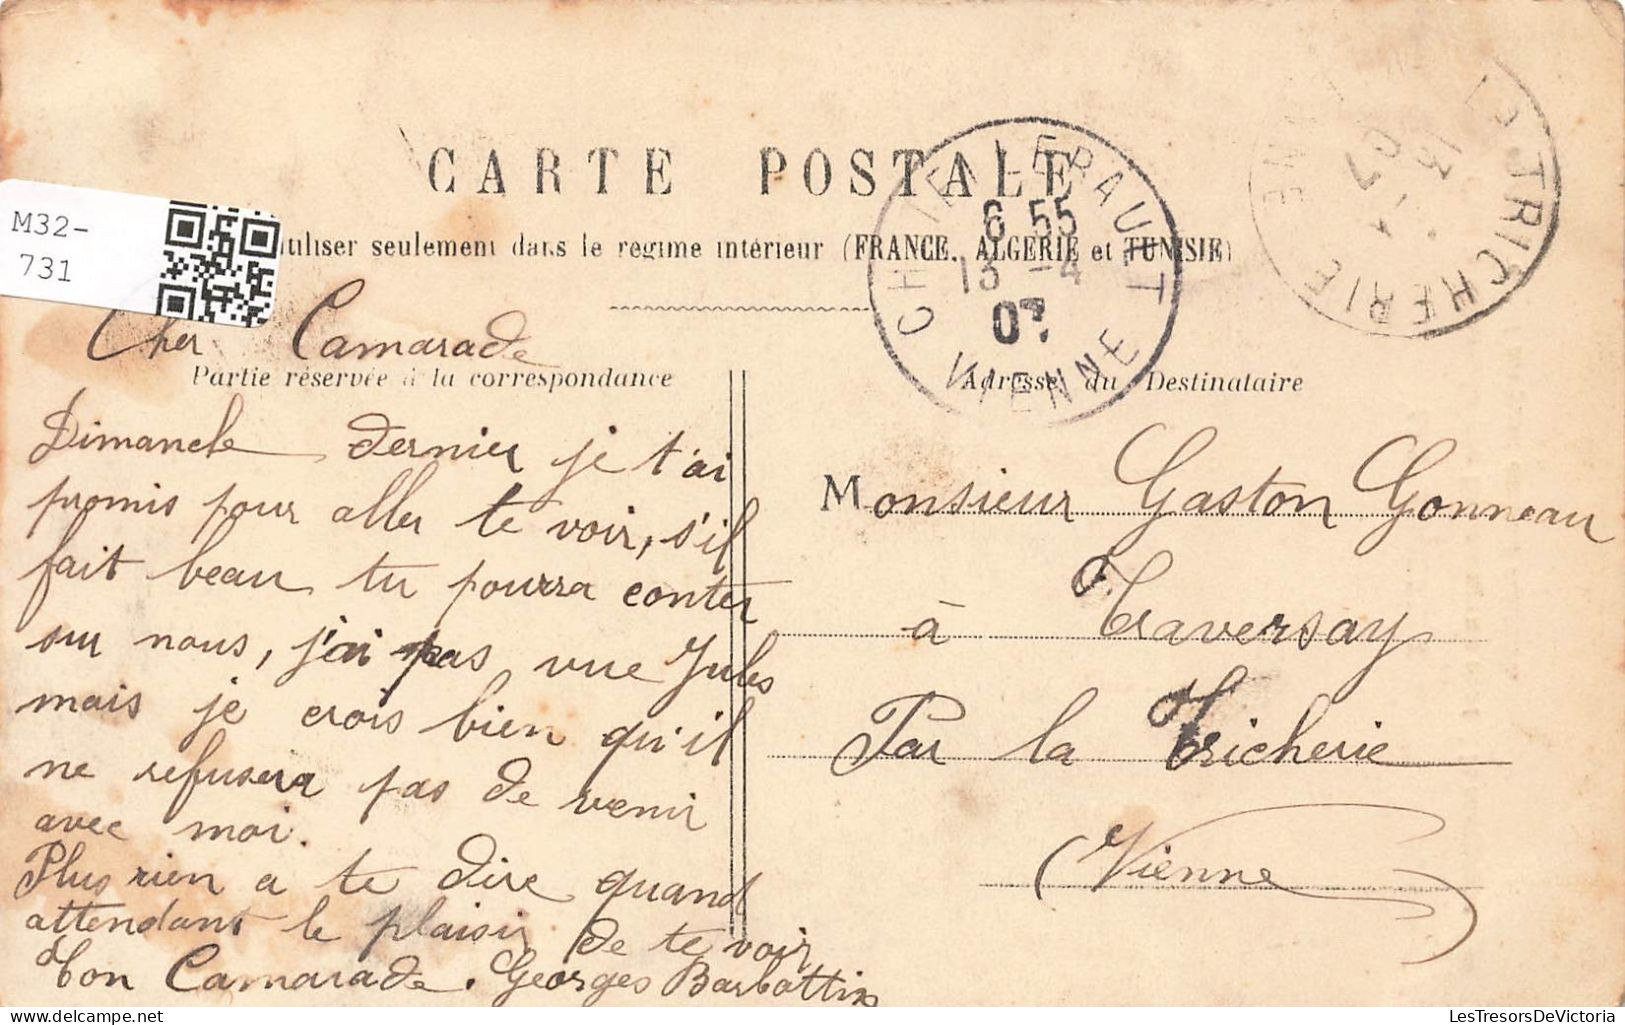 CARTE POSTALE
M32-
731
utiliser seulement dans le régime intérieur (FRANCE, ALGERIE et TUNISIE)
CHATELLERAULT
6 55
13 -4
07
VIENNE
LA TRICHERIE
13 -4
07
Cher Camarade
Partie réservée à la correspondance
Adresse du Destinataire
Dimanche dernier je t'ai
promis pour aller te voir, s'il
fait beau tu pourra conter
sur nous, j'ai pas vue Jules
mais je crois bien qu'il
ne refusera pas de venir
avec moi.
Plus rien a te dire quand
attendant le plaisir de te voir
bon Camarade. Georges Barbottin
Monsieur Gaston Gonneau
à Traversay
Par la Tricherie
(Vienne)
LesTresorsDeVictoria